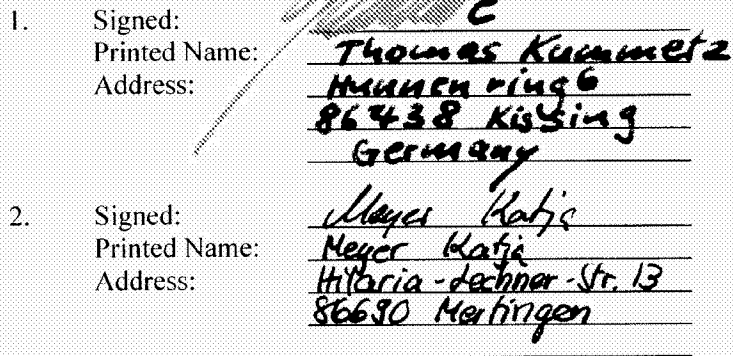 1. Signed: C
Printed Name: Thomas Kummetz
Address: Hunnenring 6
86438 Kissing
Germany
2. Signed: Meyer Katja
Printed Name: Meyer Katja
Address: Hilaria-Lechner-Str. 13
86690 Mertingen